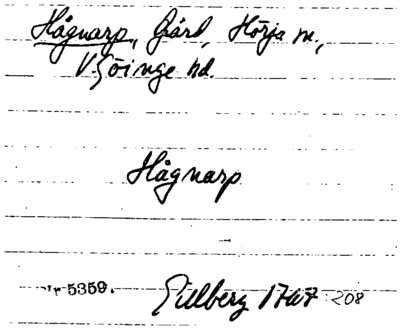 Hågnarp, Gård, Hörja sn.,
V. Göinge hd.
Hågnarp
Nr 5359. Gillberg 1767 208